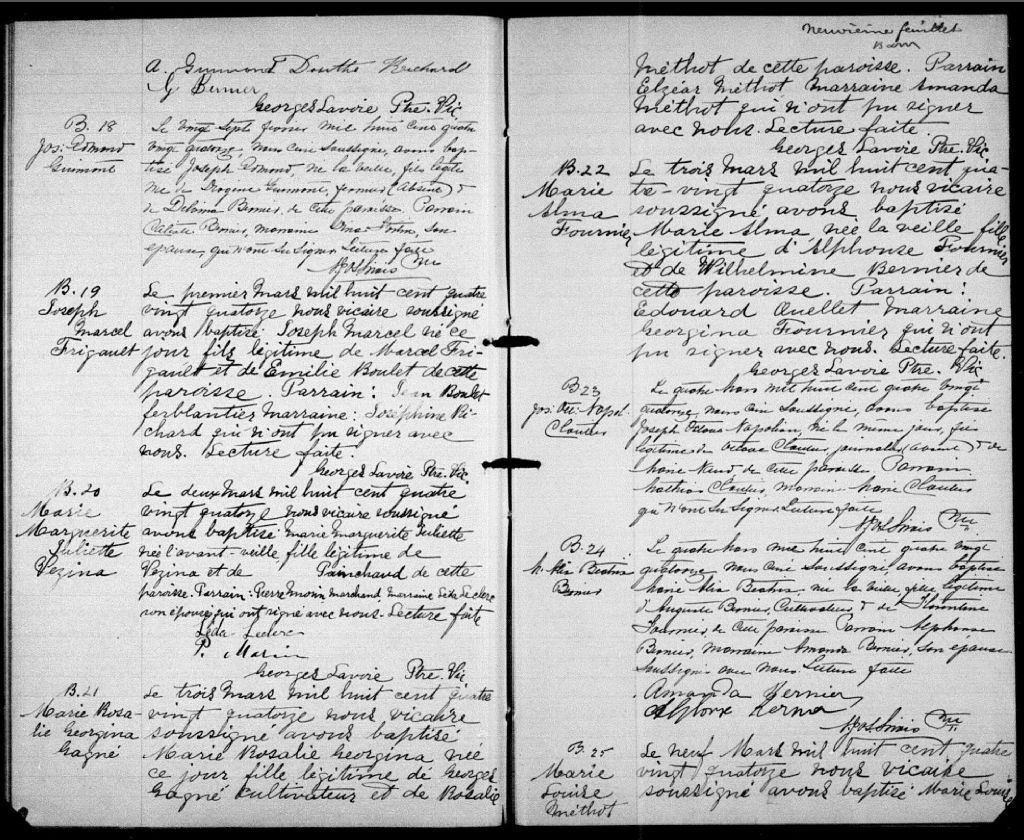 A. Guimond Douthe Richard
G Bernier
Georges Lavoie Ptre. Vic
B. 18
Jos: Edmond
Guimont
Le vingt sept février mil huit cent quatre
vingt quatorze, nous curé soussigné, avons bap-
tisé Joseph Edmond, né la veille, fils légiti-
me de Guimont, fermier (absent) &
de Delvina Bernier, de cette paroisse. Parrain
Bernier, marraine Fortin, son
épouse, qui n'ont su signer. Lecture faite
Curé
B. 19
Joseph
Marcel
Frigault
Le premier Mars mil huit cent quatre
vingt quatorze nous vicaire soussigné
avons baptisé Joseph Marcel né ce
jour fils légitime de Marcel Fri-
gault et de Emilie Boulet de cette
paroisse. Parrain: Jean Boulet
ferblantier Marraine: Joséphine Ri-
chard qui n'ont pu signer avec
nous. Lecture faite.
Georges Lavoie Ptre. Vic
B. 20
Marie
Marguerite
Juliette
Vezina
Le deux Mars mil huit cent quatre
vingt quatorze nous vicaire soussigné
avons baptisé Marie Marguerite Juliette
née l'avant-veille, fille légitime de
Vezina et de Painchaud de cette
paroisse. Parrain: Pierre Morin marchand Marraine Léda Leclerc
son épouse qui ont signé avec nous. Lecture faite
Léda Leclerc
P. Morin
Georges Lavoie Ptre. Vic
B. 21
Marie Rosa-
lie Georgina
Gagné
Le trois Mars mil huit cent quatre
vingt quatorze nous vicaire
soussigné avons baptisé
Marie Rosalie Georgina née
ce jour fille légitime de Georges
Gagné cultivateur et de Rosalie
Neuvième feuillet
Méthot de cette paroisse. Parrain
Elzéar Méthot Marraine Amanda
Méthot qui n'ont pu signer
avec nous. Lecture faite.
Georges Lavoie Ptre. Vic
B. 22
Marie
Alma
Fournier
Le trois Mars mil huit cent qua-
tre-vingt quatorze nous vicaire
soussigné avons baptisé
Marie Alma née la veille fille
légitime d'Alphonse Fournier
et de Wilhelmine Bernier de
cette paroisse. Parrain:
Edouard Ouellet Marraine
Georgina Fournier qui n'ont
pu signer avec nous. Lecture faite.
Georges Lavoie Ptre. Vic
B 23
Jos: Oct: Napol:
Cloutier
Le quatre Mars mil huit cent quatre vingt
quatorze, nous curé soussigné, avons baptisé
Joseph Octave Napoléon, né le même jour, fils
légitime de Octave Cloutier, journalier, (absent) & de
Marie de cette paroisse Parrain
Mathias Cloutier, marraine Marie Cloutier
qui n'ont su signer. Lecture faite
Curé
B. 24
M. Béatrix
Bernier
Le quatre Mars mil huit cent quatre vingt
quatorze, nous curé soussigné avons baptisé
Marie Béatrix, née la veille, fille légitime
d'Auguste Bernier, cultivateur & de Florentine
Fournier, de cette paroisse Parrain Alphonse
Bernier, marraine Amanda Bernier, son épouse
soussignés avec nous Lecture faite
Amanda Bernier
Curé
B. 25
Marie
Louise
Méthot
Le neuf Mars mil huit cent quatre
vingt quatorze nous vicaire
soussigné avons baptisé Marie Louise